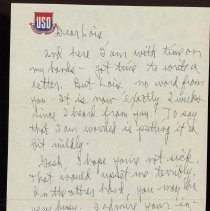 USO
Dear Lois
and here I am with time on
my hands - got time to write a
letter. But Lois no word from
you - it is now exactly 2 weeks
since I heard from you. To say
that I am worried is putting it
mildly.
Gosh, I hope you're not sick,
that would upset me terribly.
On the other hand, you may be
very busy. I admire your in-